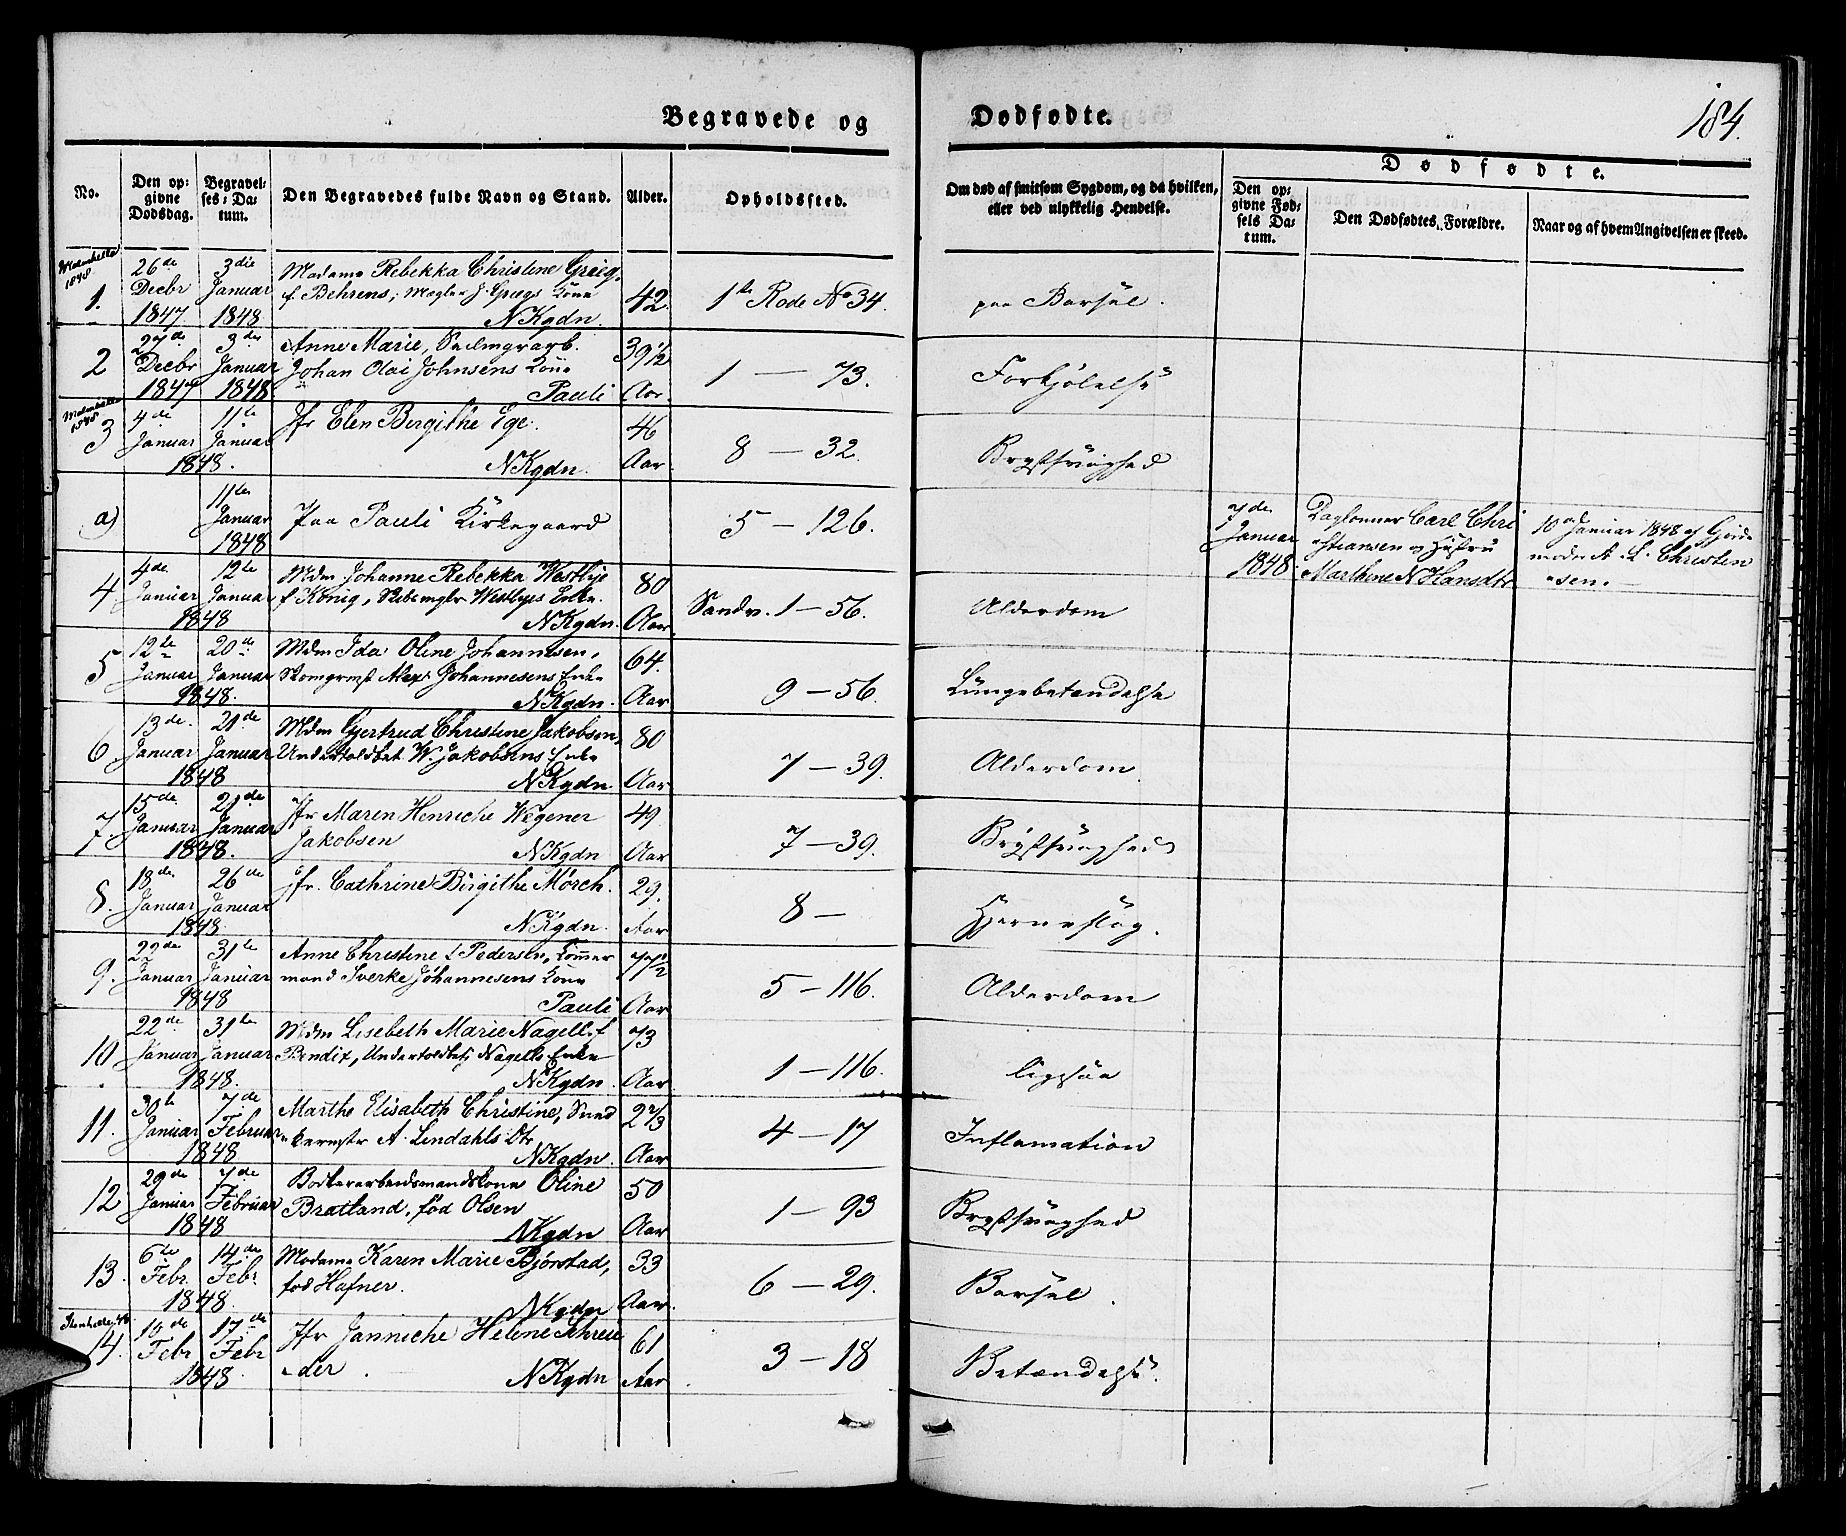 Begravede og Dødfødte.
184.
No.
Den opgivne Dødsdag.
Begravelses-Datum.
Den Begravedes fulde Navn og Stand.
Alder.
Opholdssted.
Om død af smitsom Sygdom, og da hvilken, eller ved ulykkelig Hendelse.
Dødfødte.
Den opgivne Fødsels Datum.
Den Dødfødtes Forældre.
Naar og af hvem Angivelsen er skeed.
1848.
1. 26de Decbr 1847 3die Januar 1848 Madame Rebekka Christine Grieg, 42 1ste Rode No 34. paa Barsel.
f. Behrens, Mægler J. Griegs Kone
NKgdn.
2 27de Decbr 1847 3die Januar 1848 Anne Marie, 39 1/2 Aar. 1 — 73. Forkjølelse
Johan Olai Johnsens Kone
Pauli
1848
3 4de Januar 11te Januar 1848. Jfr Elen Birgithe Ege. 46 Aar 8 — 32. Brystsvaghed
NKgdn.
a) 11te Januar 1848 Paa Pauli Kirkegaard 5 — 126. 7de Januar 1848 Daglønner Carl Chri 10de Januar 1848 af Gjorde
stiansen og Hustru moder A. L. Christen
Marthine N. Hansdtr sen.
4 4de Januar 12te Januar 1848 Mdm Johanne Rebekka Westbye 80 Aar Sandv. 1 — 56. Alderdom
f. König, Westbyes Enke.
NKgdn.
5 12te Januar 20de Januar 1848. Mdm Ida Oline Johannesen, 64. Aar 9 — 56. Lungebetændelse
Skomgrmst Alex. Johannesens Enke
NKgdn.
6 13de Januar 21de Januar 1848 Mdm Gjertrud Christine Jakobsen, 80 Aar 7 — 39. Alderdom.
Undertoldbet. W. Jakobsens Enke
NKgdn.
7. 15de Januar 21de Januar 1848. Jfr Maren Henriche Wegener 49 Aar 7 — 39. Brystsvaghed
Jakobsen
NKgdn
8. 18de Januar 26de Januar 1848. Jfr. Cathrine Birgithe Mørch. 29. Aar 8 — Hjerneslag.
NKgdn.
9. 22de Januar 31te Januar 1848 Anne Christine f Pedersen, Tømmer 77 1/2 Aar 5 — 116. Alderdom
mand Sverke Johannesens Kone
Pauli
10 22de Januar 31te Januar 1848. Mdm Lisebeth Marie Nagell, f 73 Aar. 1 — 116. ligesaa
Bendix, Undertoldbetj Nagells Enke
NKgdn.
11. 30te Januar 7de Februar 1848 Marthe Elisabeth Christine, Sned 2 2/3 Aar 4 — 17 Inflamation
kermstr A. Lendahls Dtr
NKgdn.
12 29de Januar 7de Februar 1848 Bødkerarbeidsmandskone Oline 50 Aar 1 — 93 Brystsvaghed
Bratland, fød Olsen
NKgdn
13. 6te Febr. 14de Febr 1848. Madame Karen Marie Bjørstad, 33 Aar. 6 — 29. Barsel.
fød Hafner.
NKgdn
14. 10de Febr 17de Febr 1848 Jfr Janniche Helene Schrei 61 Aar 3 — 18 Betændelse.
der.
NKgdn